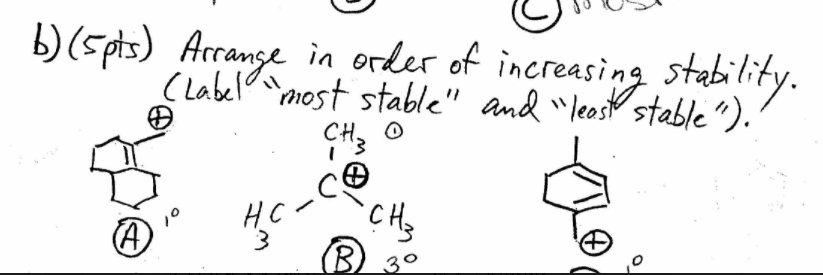 C most
b) (5pts) Arrange in order of increasing stability.
(Label "most stable" and "least stable").
⊕
CH3 ①
C⊕
H3C CH3
⊕
A 1°
B 3°
1°